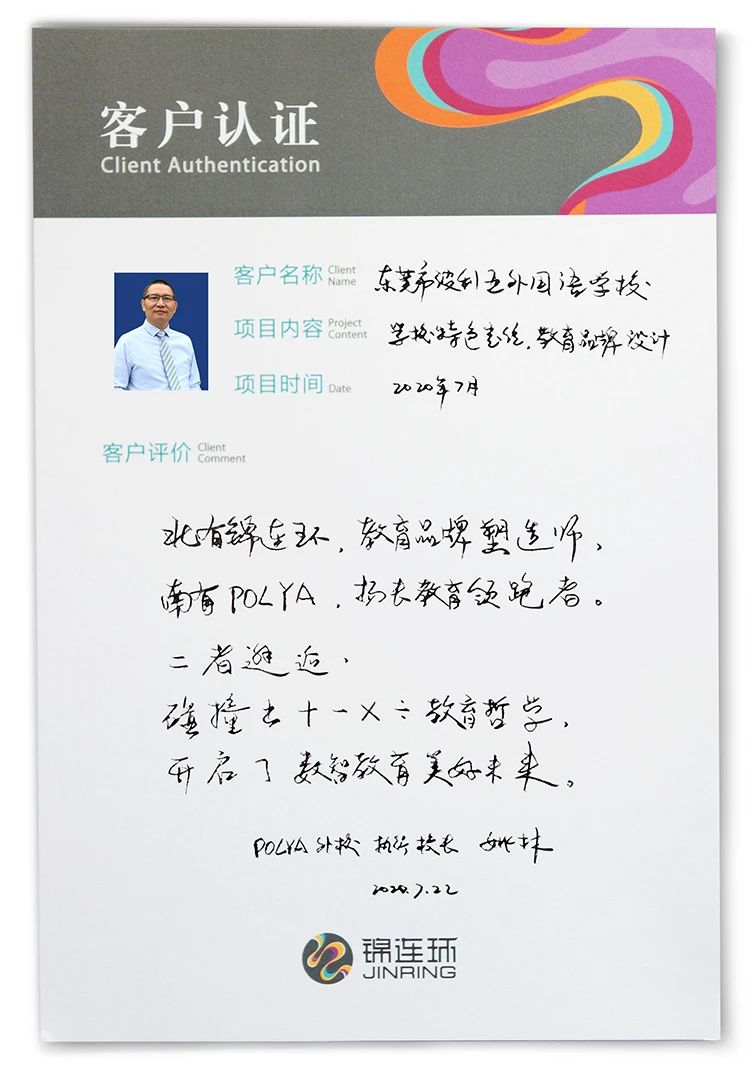 客户认证
Client Authentication
客户名称 Client Name 东莞市玻利亚外国语学校
项目内容 Project Content 学校特色总结，教育品牌设计
项目时间 Date 2020年7月
客户评价 Client Comment
北有锦连环，教育品牌塑造师，
南有POLYA，扬长教育领跑者。
二者邂逅，
碰撞出十一X÷教育哲学，
开启了数智教育美好未来。
POLYA外校 执行校长 姚林
2020.7.22
锦连环
JINRING